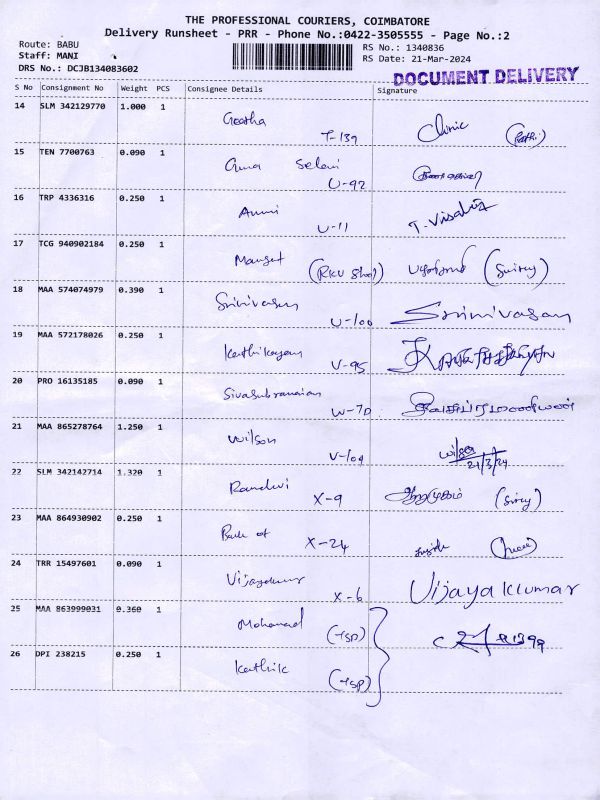 THE PROFESSIONAL COURIERS, COIMBATORE
Delivery Runsheet - PRR - Phone No.:0422-3505555 - Page No.:2
Route: BABU
Staff: MANI
DRS No.: DCJB134083602
RS No.: 1340836
RS Date: 21-Mar-2024
DOCUMENT DELIVERY
S No Consignment No Weight PCS Consignee Details Signature
14 SLM 342129770 1.000 1 Geetha T-139 Clinic
15 TEN 7700763 0.090 1 Selvi U-92
16 TRP 4336316 0.250 1 U-11 T.
17 TCG 940902184 0.250 1
18 MAA 574074979 0.390 1 Srinivasan U-100 Srinivasan
19 MAA 572178026 0.250 1 Karthikayan V-95
20 PRO 16135185 0.090 1 Sivasubramanian W-70 சிவசுப்ரமணியன்
21 MAA 865278764 1.250 1 Wilson V-109 Wilson
21/3/24
22 SLM 342142714 1.320 1 X-9 ஆறுமுகம்
23 MAA 864930902 0.250 1 Bank of X-24
24 TRR 15497601 0.090 1 Vijayakumar X-6 Vijaya kkumar
25 MAA 863999031 0.360 1 Mohamed (TSP)
26 DPI 238215 0.250 1 Karthik (TSP)